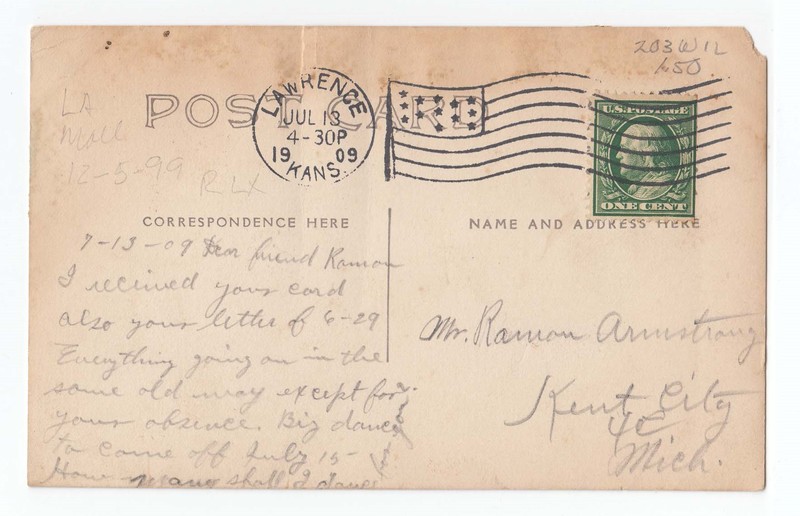 203 W 1L
650
LA
Mall
12-5-99
RLX
POST CARD
LAWRENCE
JUL 13
4-30P
1909
KANS.
U.S. POSTAGE
ONE CENT
CORRESPONDENCE HERE
NAME AND ADDRESS HERE
7-13-09 Dear friend Ramon
I received your card
also your letter of 6-29
Everything going on in the
same old way except for
your absence. Big dance
to come off July 15-
How many shall I dance
for you
Mr. Ramon Armstrong
Kent City
Mich.